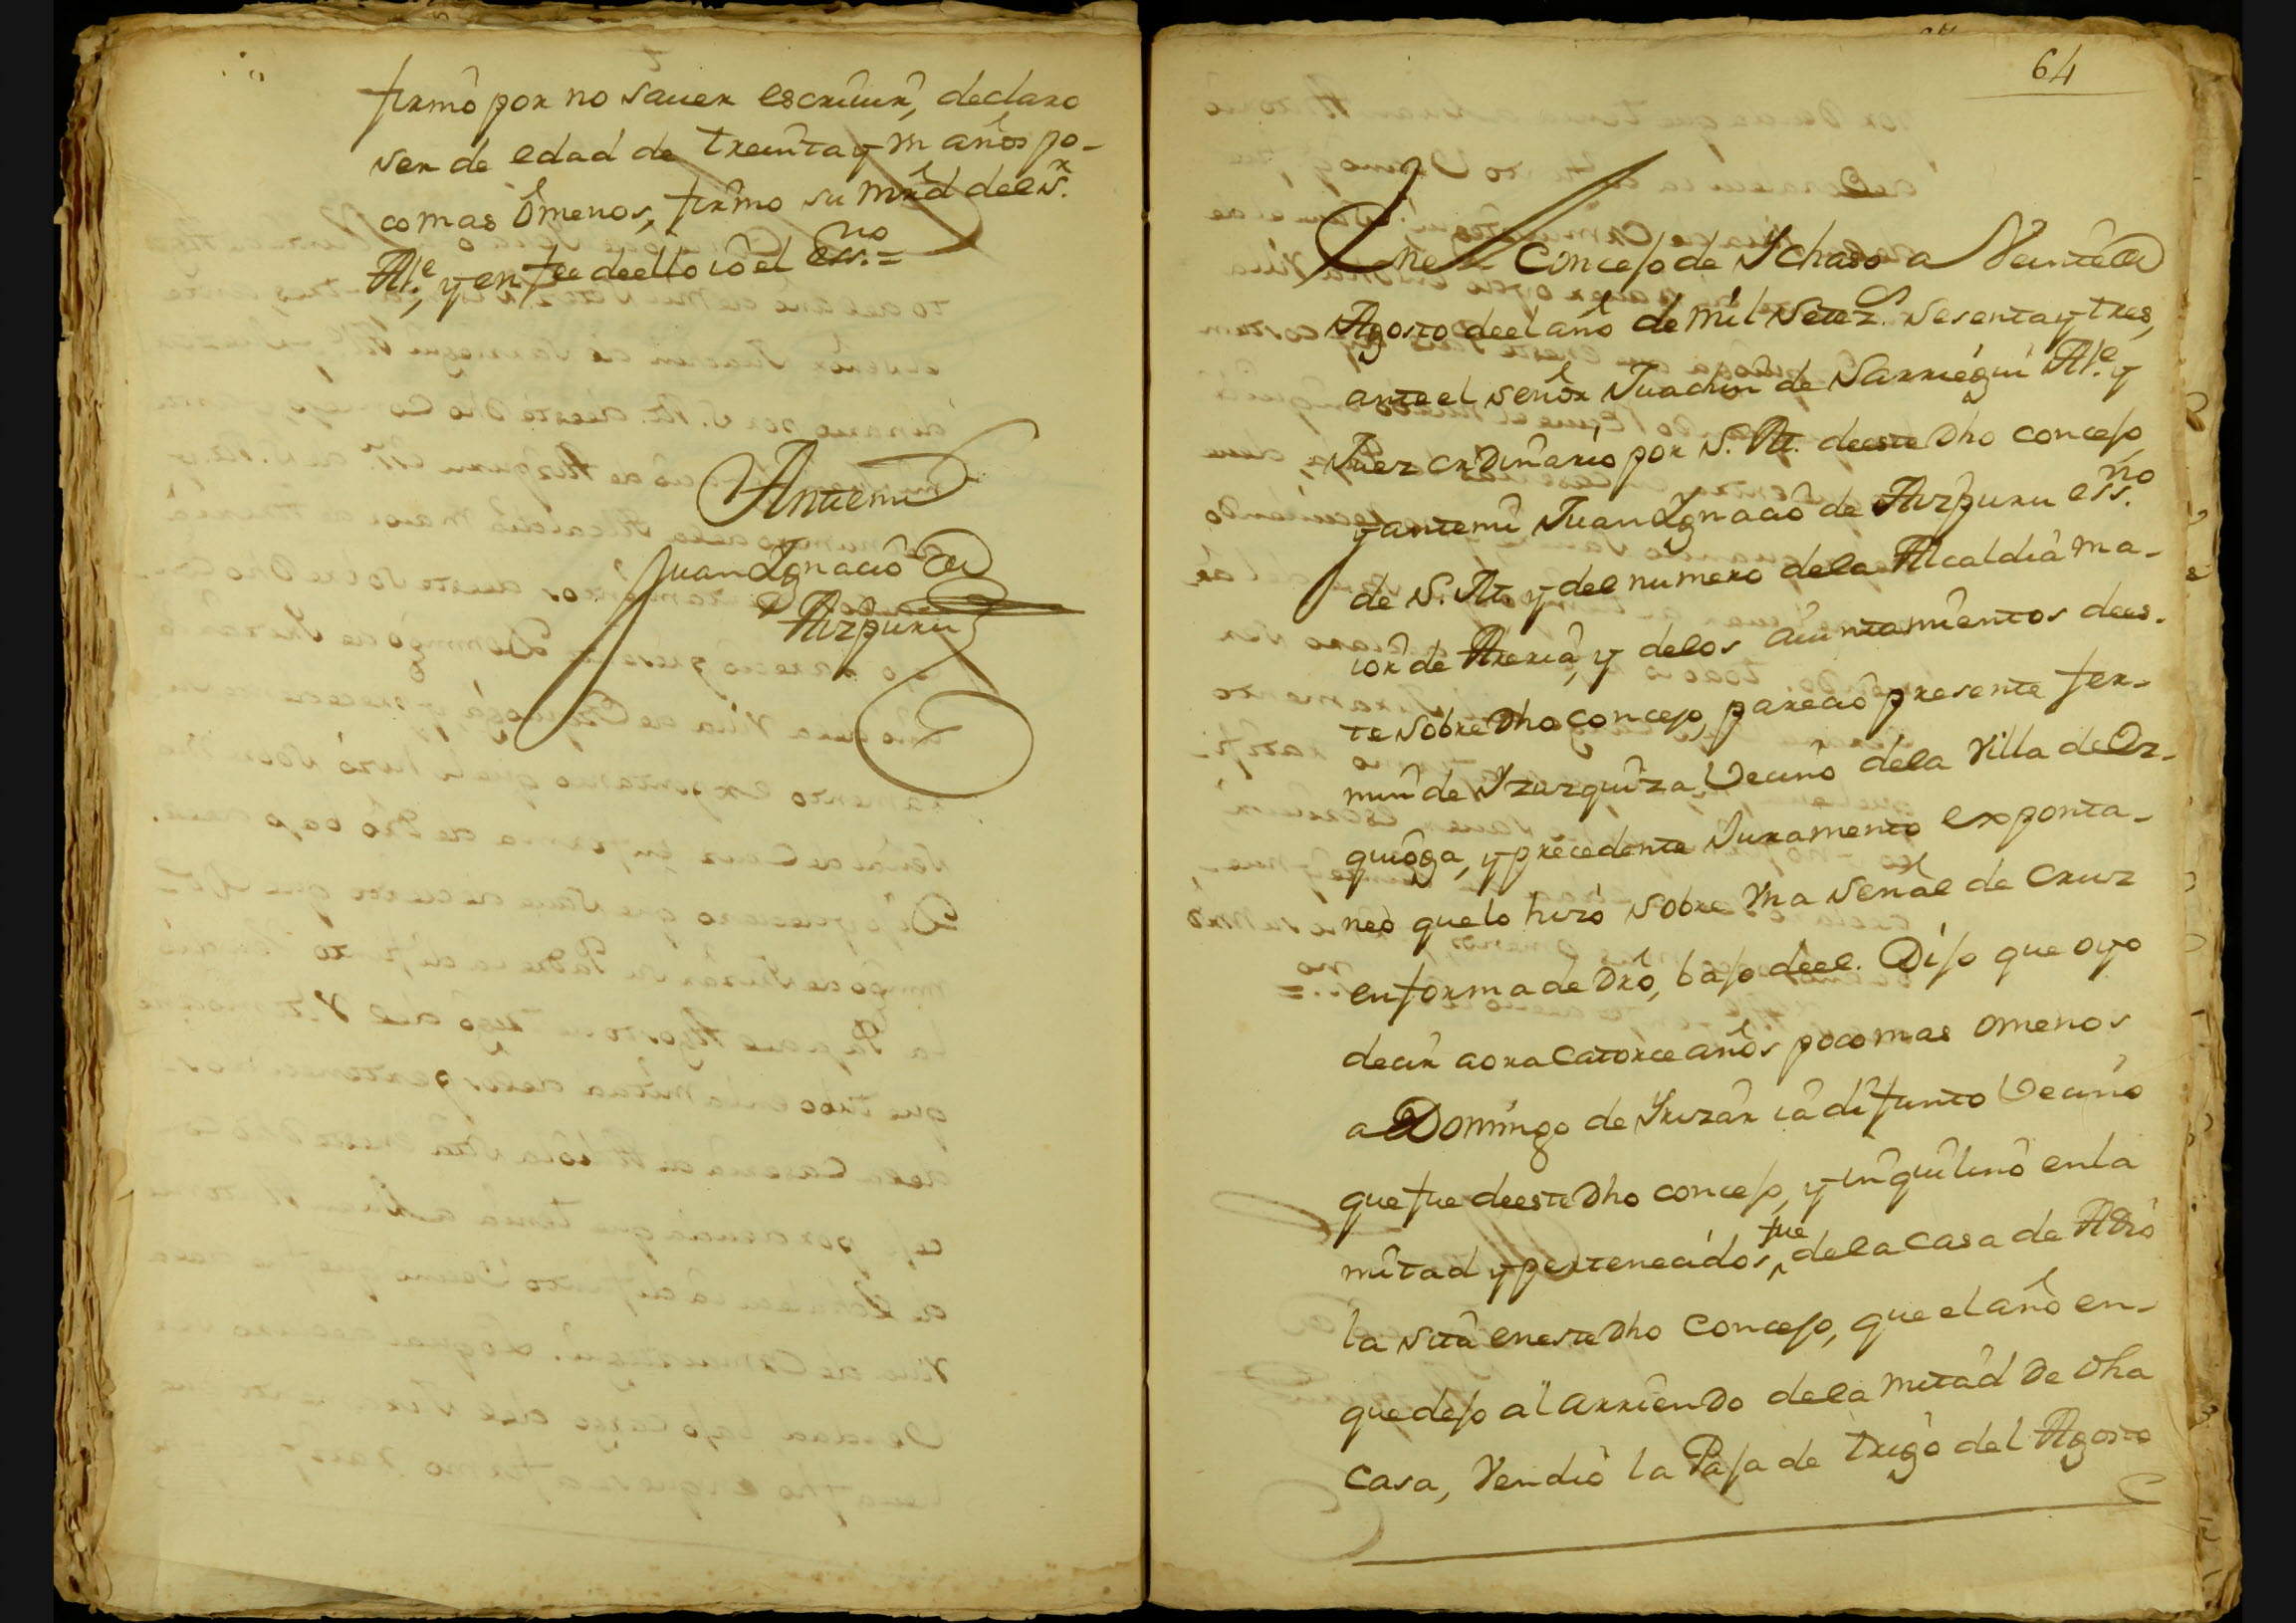 firmó por no sauer escriuir, declaro
ser de edad de treinta y un años po-
co mas ò menos, firmo su mrd del Sr.
Alе. y en fee de ello io el essno. =
Ante mi
Juan Ygnacio de
Aizpuru
64
En el Concejo de Ichaso a Veinte de
Agosto de el año de mil setez. sesenta y tres,
ante el señor Juachin de Sarriegui Alе. y
Juez ordinario por S. M. de este dho concejo,
y ante mi Juan Ygnacio de Aizpuru essno.
de S. M. y del numero de la Alcaldia ma-
ior de Areria, y de los aiuntamientos de es-
te sobre dho concejo, pareció presente fer-
min de Yzuzquiza Vecino de la Villa de Oz-
quioga, y precedente Juramento exponta-
neo que lo hizo sobre una señal de Cruz
en forma de dro, bajo de el. Dijo que oyo
decir aora catorce años poco mas o menos
a Domingo de Yrizar ia difunto Vecino
que fue de este dho concejo, y inquilino en la
mitad y pertenecidos, fue de la casa de Adio
la sita en este dho concejo, que el año en
que dejo al arriendo de la mitad de dha
casa, Vendió la Paja de trigo del Agosto